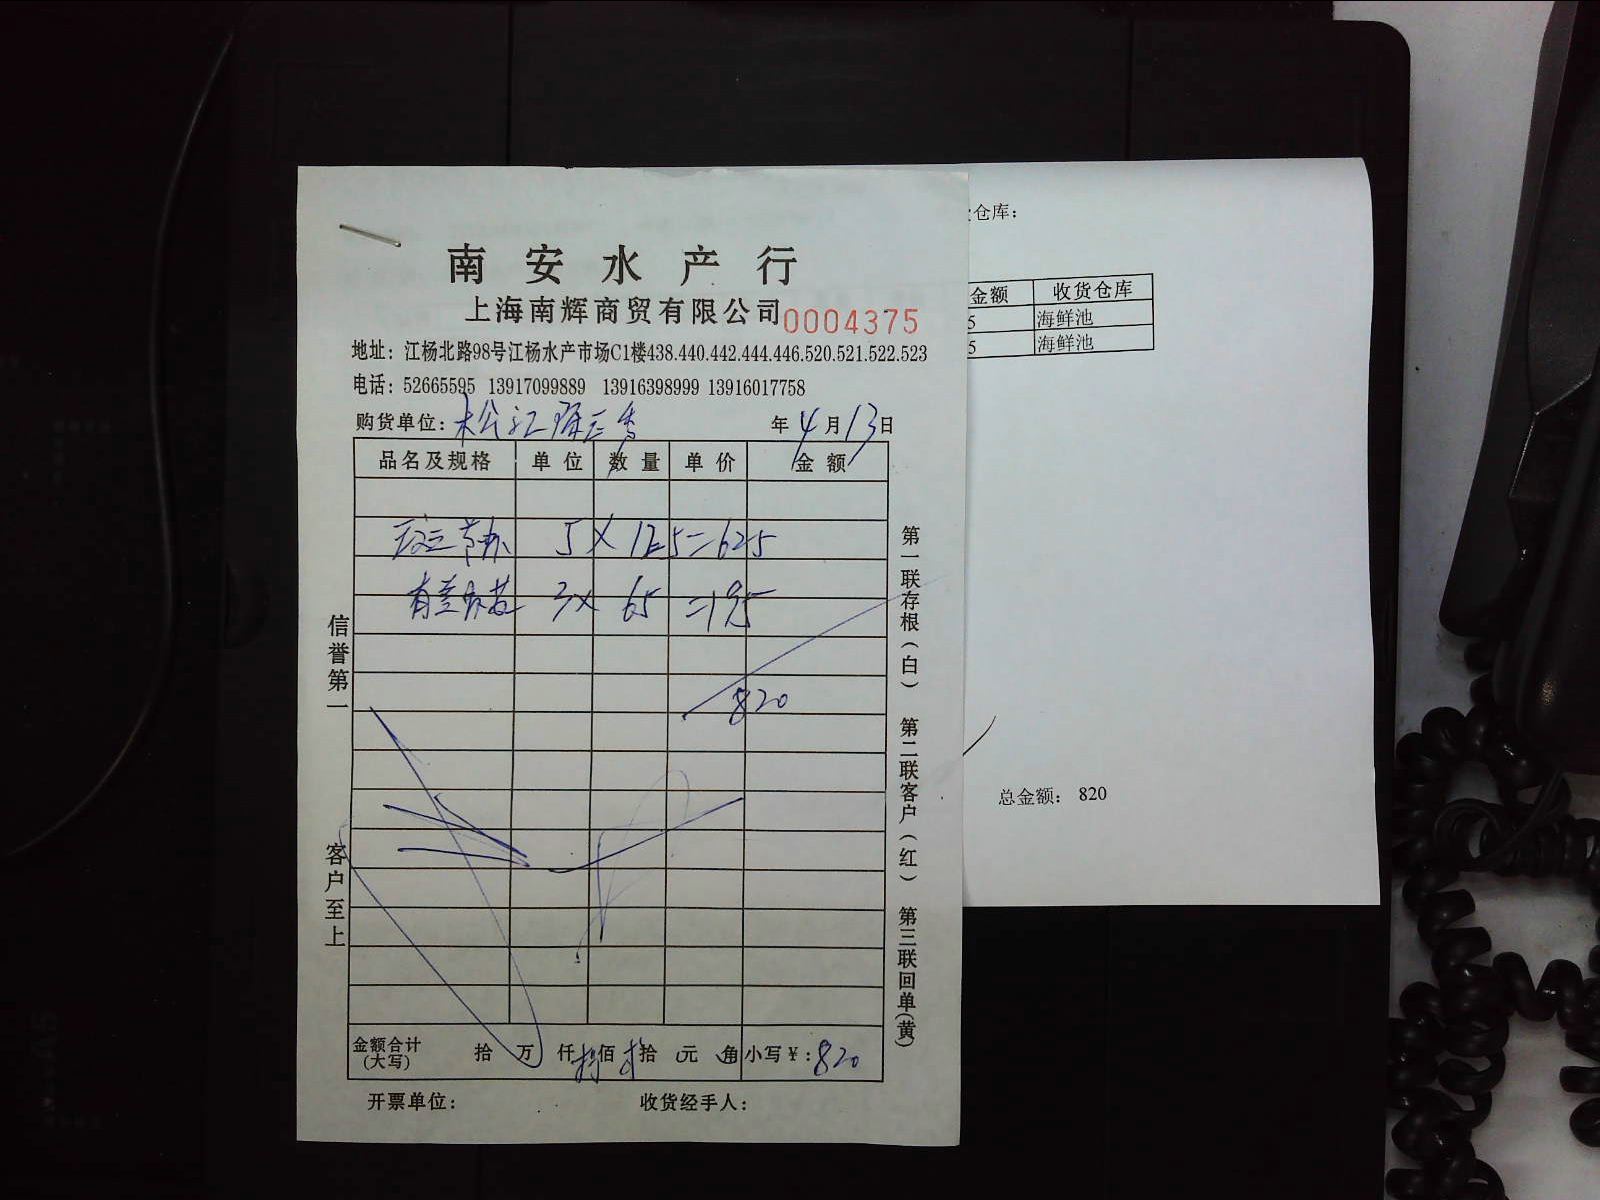 南安水产行
上海南辉商贸有限公司 0004375
地址：江杨北路98号江杨水产市场C1楼438.440.442.444.446.520.521.522.523
电话：52665595 13917099889 13916398999 13916017758
购货单位：松江 年4月13日
品名及规格 单位 数量 单价 金额
5×125=625
3×65=195
820
金额合计(大写) 拾 万 仟 捌佰 贰拾 元 角 小写￥：820
开票单位： 收货经手人：
信誉第一 客户至上
第一联存根（白） 第二联客户（红） 第三联回单（黄）
仓库：
金额 收货仓库
5 海鲜池
5 海鲜池
总金额： 820